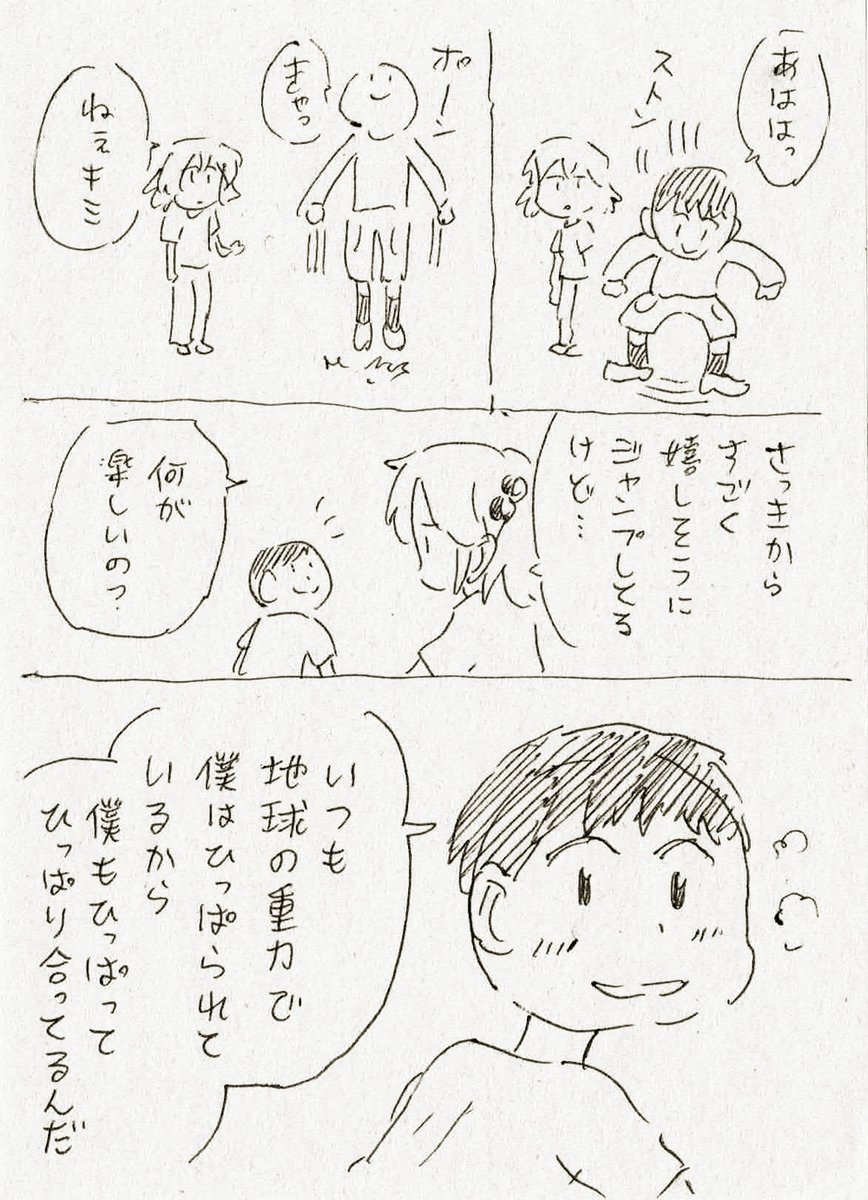 あははっ
ストン
ポーン
きゃっ
ねぇキミ
さっきから
すごく
嬉しそうに
ジャンプしてる
けど…
何が
楽しいの?
いつも
地球の重力で
僕はひっぱられて
いるから
僕もひっぱって
ひっぱり合ってるんだ